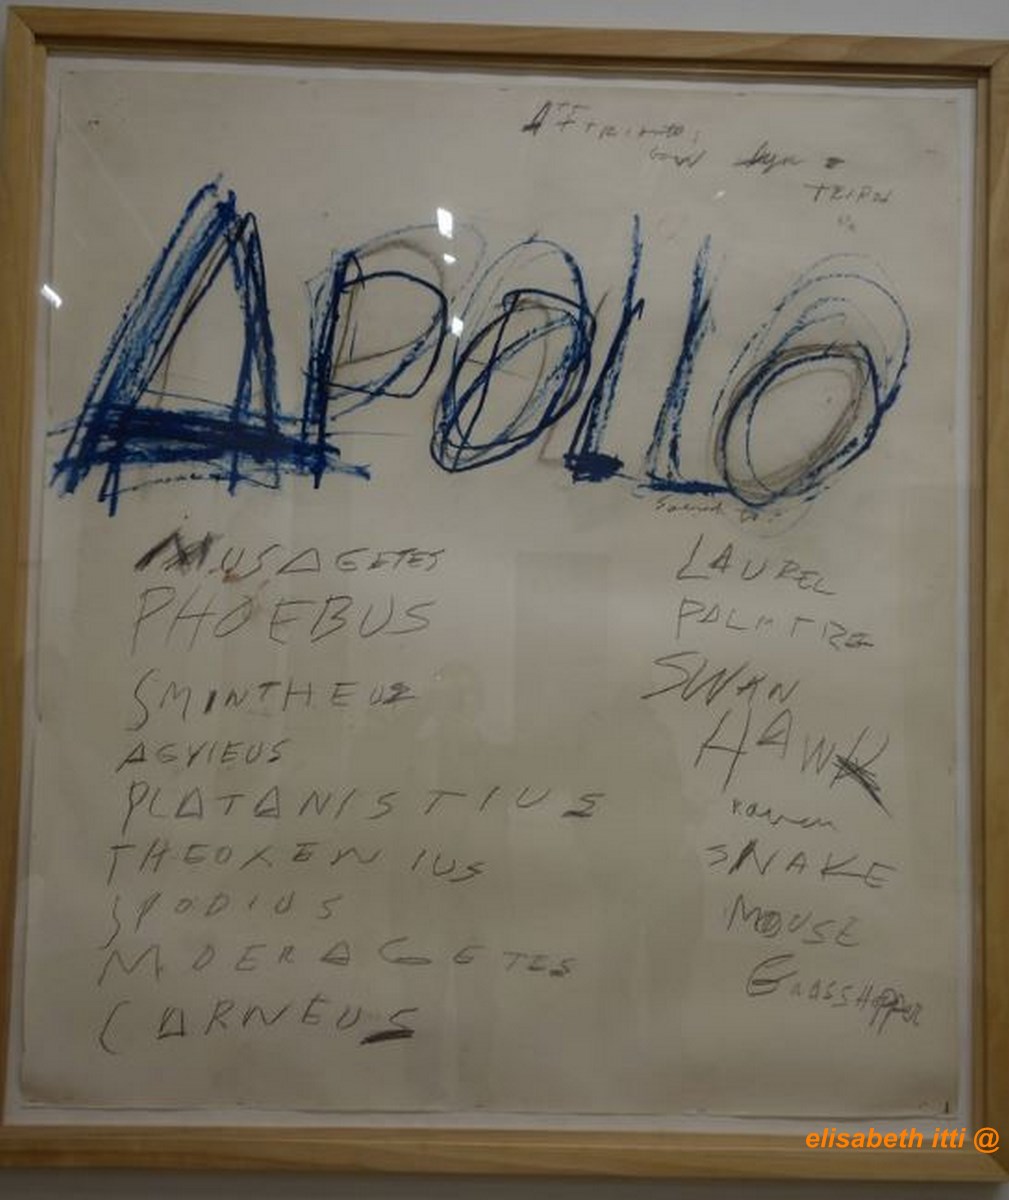 ATTTRIBUTES
BOW lyre
TRIPOD
APOLLO
names
Sacred to:
MUSAGETES
PHOEBUS
SMINTHEUS
AGYIEUS
PLATANISTIUS
THEOXENIUS
SPODIUS
MOERAGETES
CARNEUS
LAUREL
PALM TREE
SWAN
HAWK
raven
SNAKE
MOUSE
GRASSHOPPER
elisabeth itti @